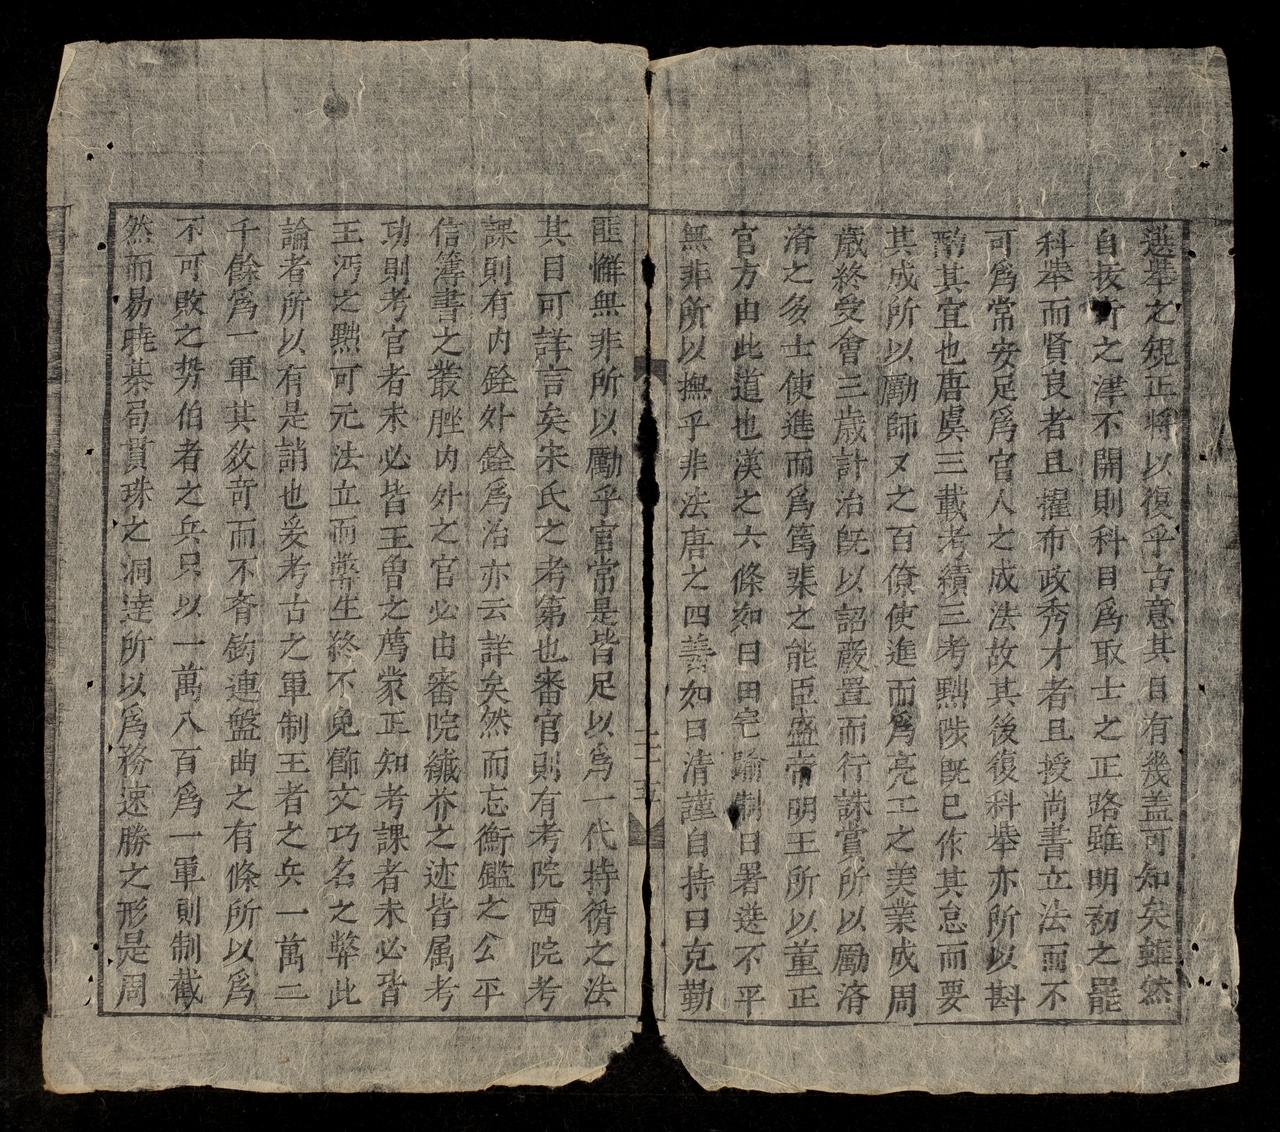 選舉之規正將以復乎古意其目有幾盖可知矣雖然
自抜 之津不開則科目爲取士之正路雖明初之罷
科舉而賢良者且擢布政秀才者且授尚書立法而不
可爲常安足爲官人之成法故其後復科舉亦所以斟
酌其宜也唐虞三載考績三考黜陟既已作其怠而要
其成所以勵師又之百僚使進而爲亮工之美業成周
歲終受會三歲計治既以詔廢置而行誅賞所以勵濟
濟之多士使進而爲篤棐之能臣盛帝明王所以董正
官方由此道也漢之六條如曰田宅踰制曰署选不平
無非所以撫乎非法唐之四善如曰清謹自持曰克勤
匪懈無非所以勵乎官常是皆足以爲一代持循之法
其目可詳言矣宋氏之考第也審官則有考院西院考
課則有内銓外銓爲治亦云詳矣然而忘衡鑑之公平
信簿書之叢脞内外之官必由審院纎芥之迹皆属考
功則考官者未必皆王曾之薦蒙正知考課者未必皆
王沔之黜可元法立而弊生終不免飾文巧名之弊此
論者所以有是誚也爰考古之軍制王者之兵一萬二
千餘爲一軍其效奇而不育鈎連盤曲之有條所以爲
不可敗之势伯者之兵只以一萬八百爲一軍則制截
然而易曉棊局貫珠之洞達所以爲務速勝之形是周
二十五